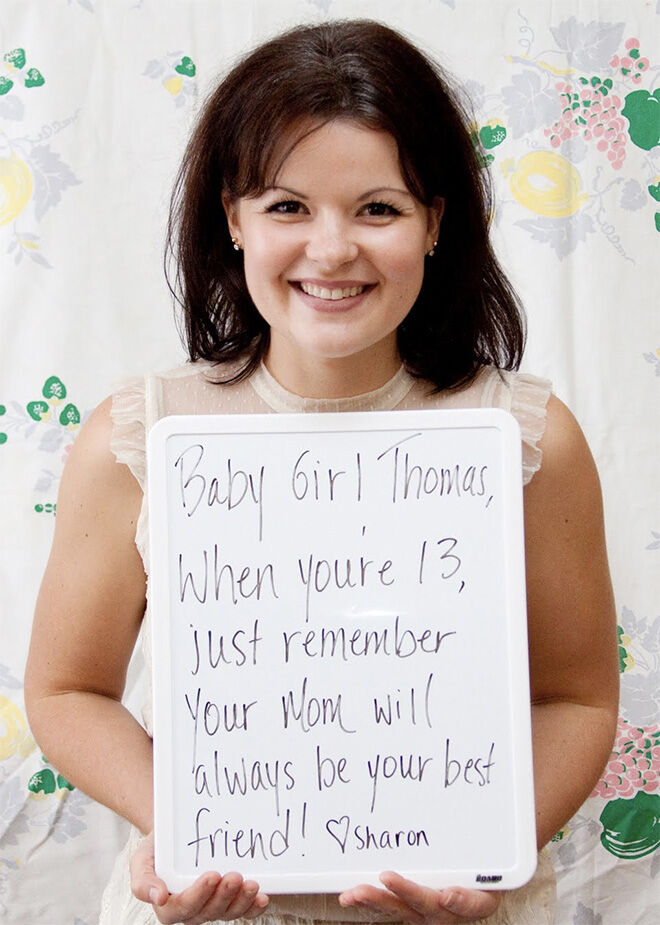 Baby Girl Thomas,
When you're 13,
just remember
your Mom will
always be your best
friend! ♡sharon